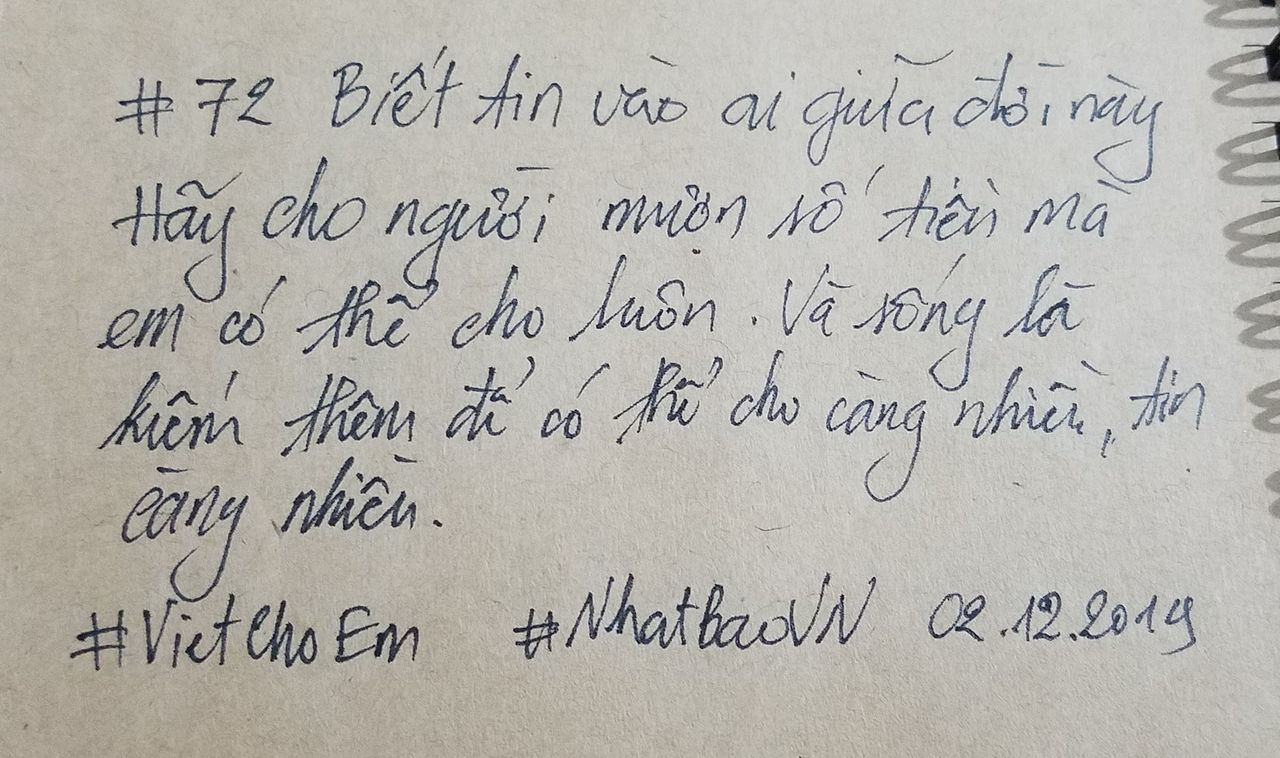 #72 Biết tin vào ai giữa đời này
Hãy cho người mượn số tiền mà
em có thể cho luôn. Và sống là
kiếm thêm để có thể cho càng nhiều, tin
càng nhiều.
#VietChoEm #NhatBaoVN 02.12.2019